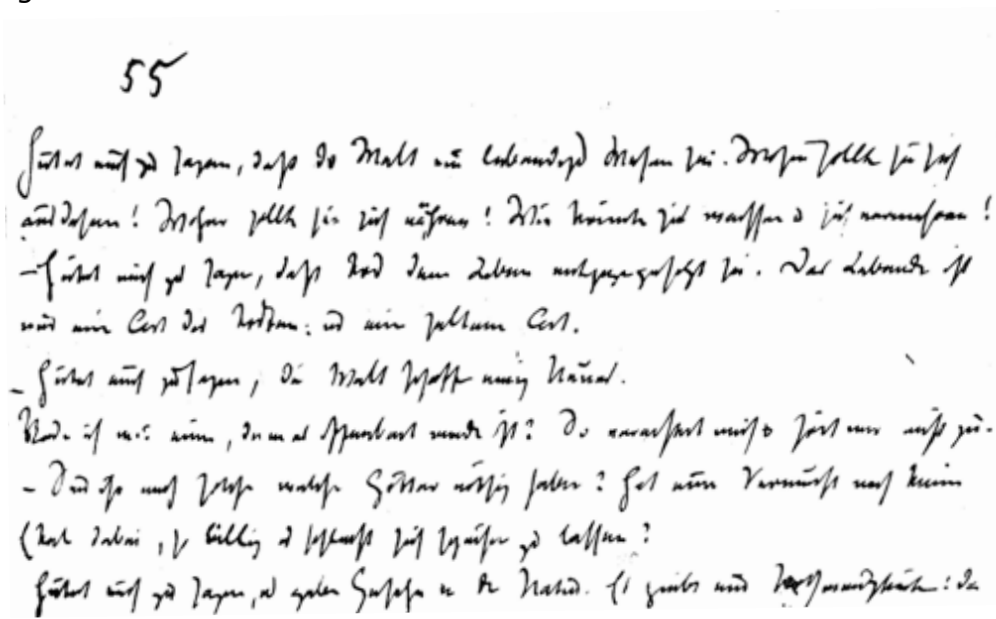 55
Hütet euch zu sagen, daß die Welt ein lebendiges Wesen sei. Wohin sollte sie sich
ausdehnen! Woher sollte sie sich nähren! Wie könnte sie wachsen u sich vermehren!
– Hütet euch zu sagen, daß Tod dem Leben entgegengesetzt sei. Das Lebende ist
nur eine Art des Todten: und eine seltene Art.
– Hütet euch zu sagen, die Welt schaffe ewig Neues.
Rede ich wie einer, dem es offenbart worden ist? So verachtet mich u hört mir nicht zu.
– Seid ihr noch solche welche Götter nöthig haben? Hat eure Vernunft noch keinen
Ekel dabei, so billig u schlecht sich speisen zu lassen?
Hütet euch zu sagen, es gebe Gesetze in der Natur. Es giebt nur Nothwendigkeiten: da